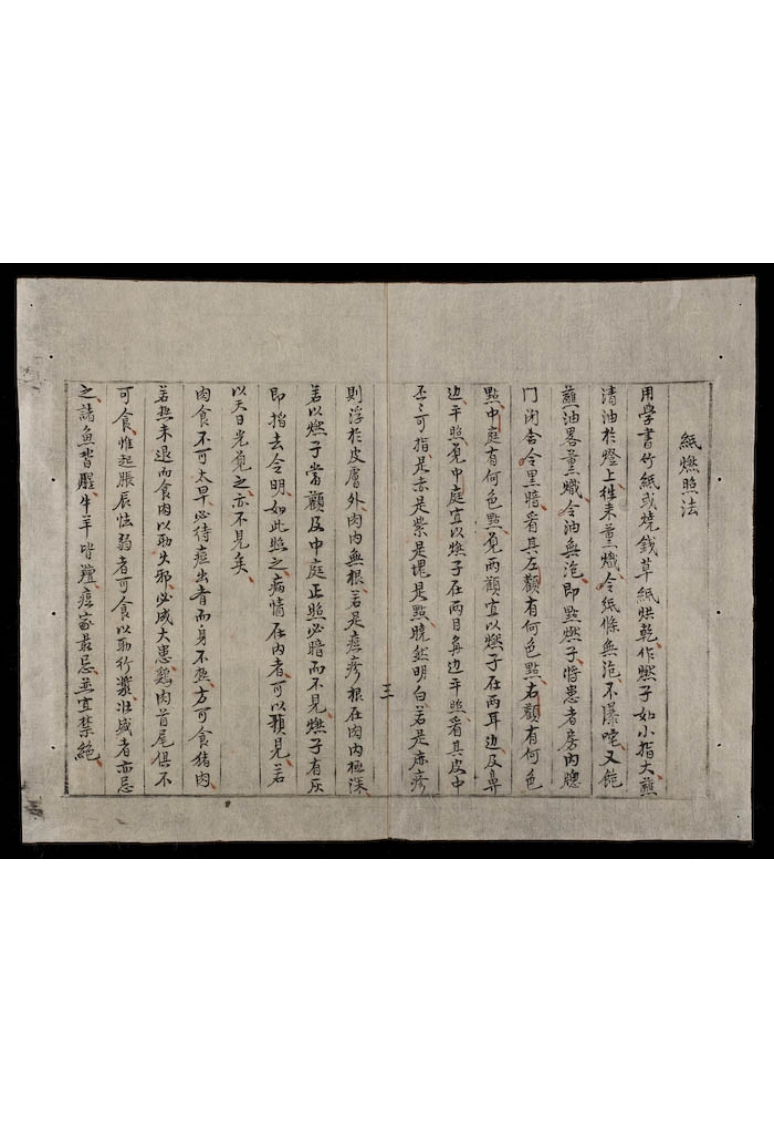 紙燃照法
用學書竹紙或燒錢草紙烘乾作燃子如小指大蘸
清油於燈上徃来薰熾令紙條無泡不爆咤又飽
蘸油畧薰熾令油無泡即點燃子將患者房內牕
門閉舍令黒暗看其左顴有何色點右顴有何色
點中庭有何色點覓兩顴宜以燃子在兩耳邊及鼻
邊平照覓中庭宜以燃子在兩目鼻邊平照看其皮中
歷歷可指是赤是紫是塊是點曉然明白若是痳疹
三
則浮於皮膚外肉內無根若是痘疹根在肉內極深
若以燃子當顴及中庭正照必暗而不見燃子有灰
即指去令明如此照之病情在內者可以預見若
以天日光覓之亦不見矣
肉食不可太早必待痘出青而身不熱方可食猪肉
若熱未退而食肉以助火邪必成大患鷄肉首尾俱不
可食惟起脹辰怯弱者可食以助行漿壯盛者亦忌
之諸魚皆腥牛羊皆羶痘家最忌並宜禁絶